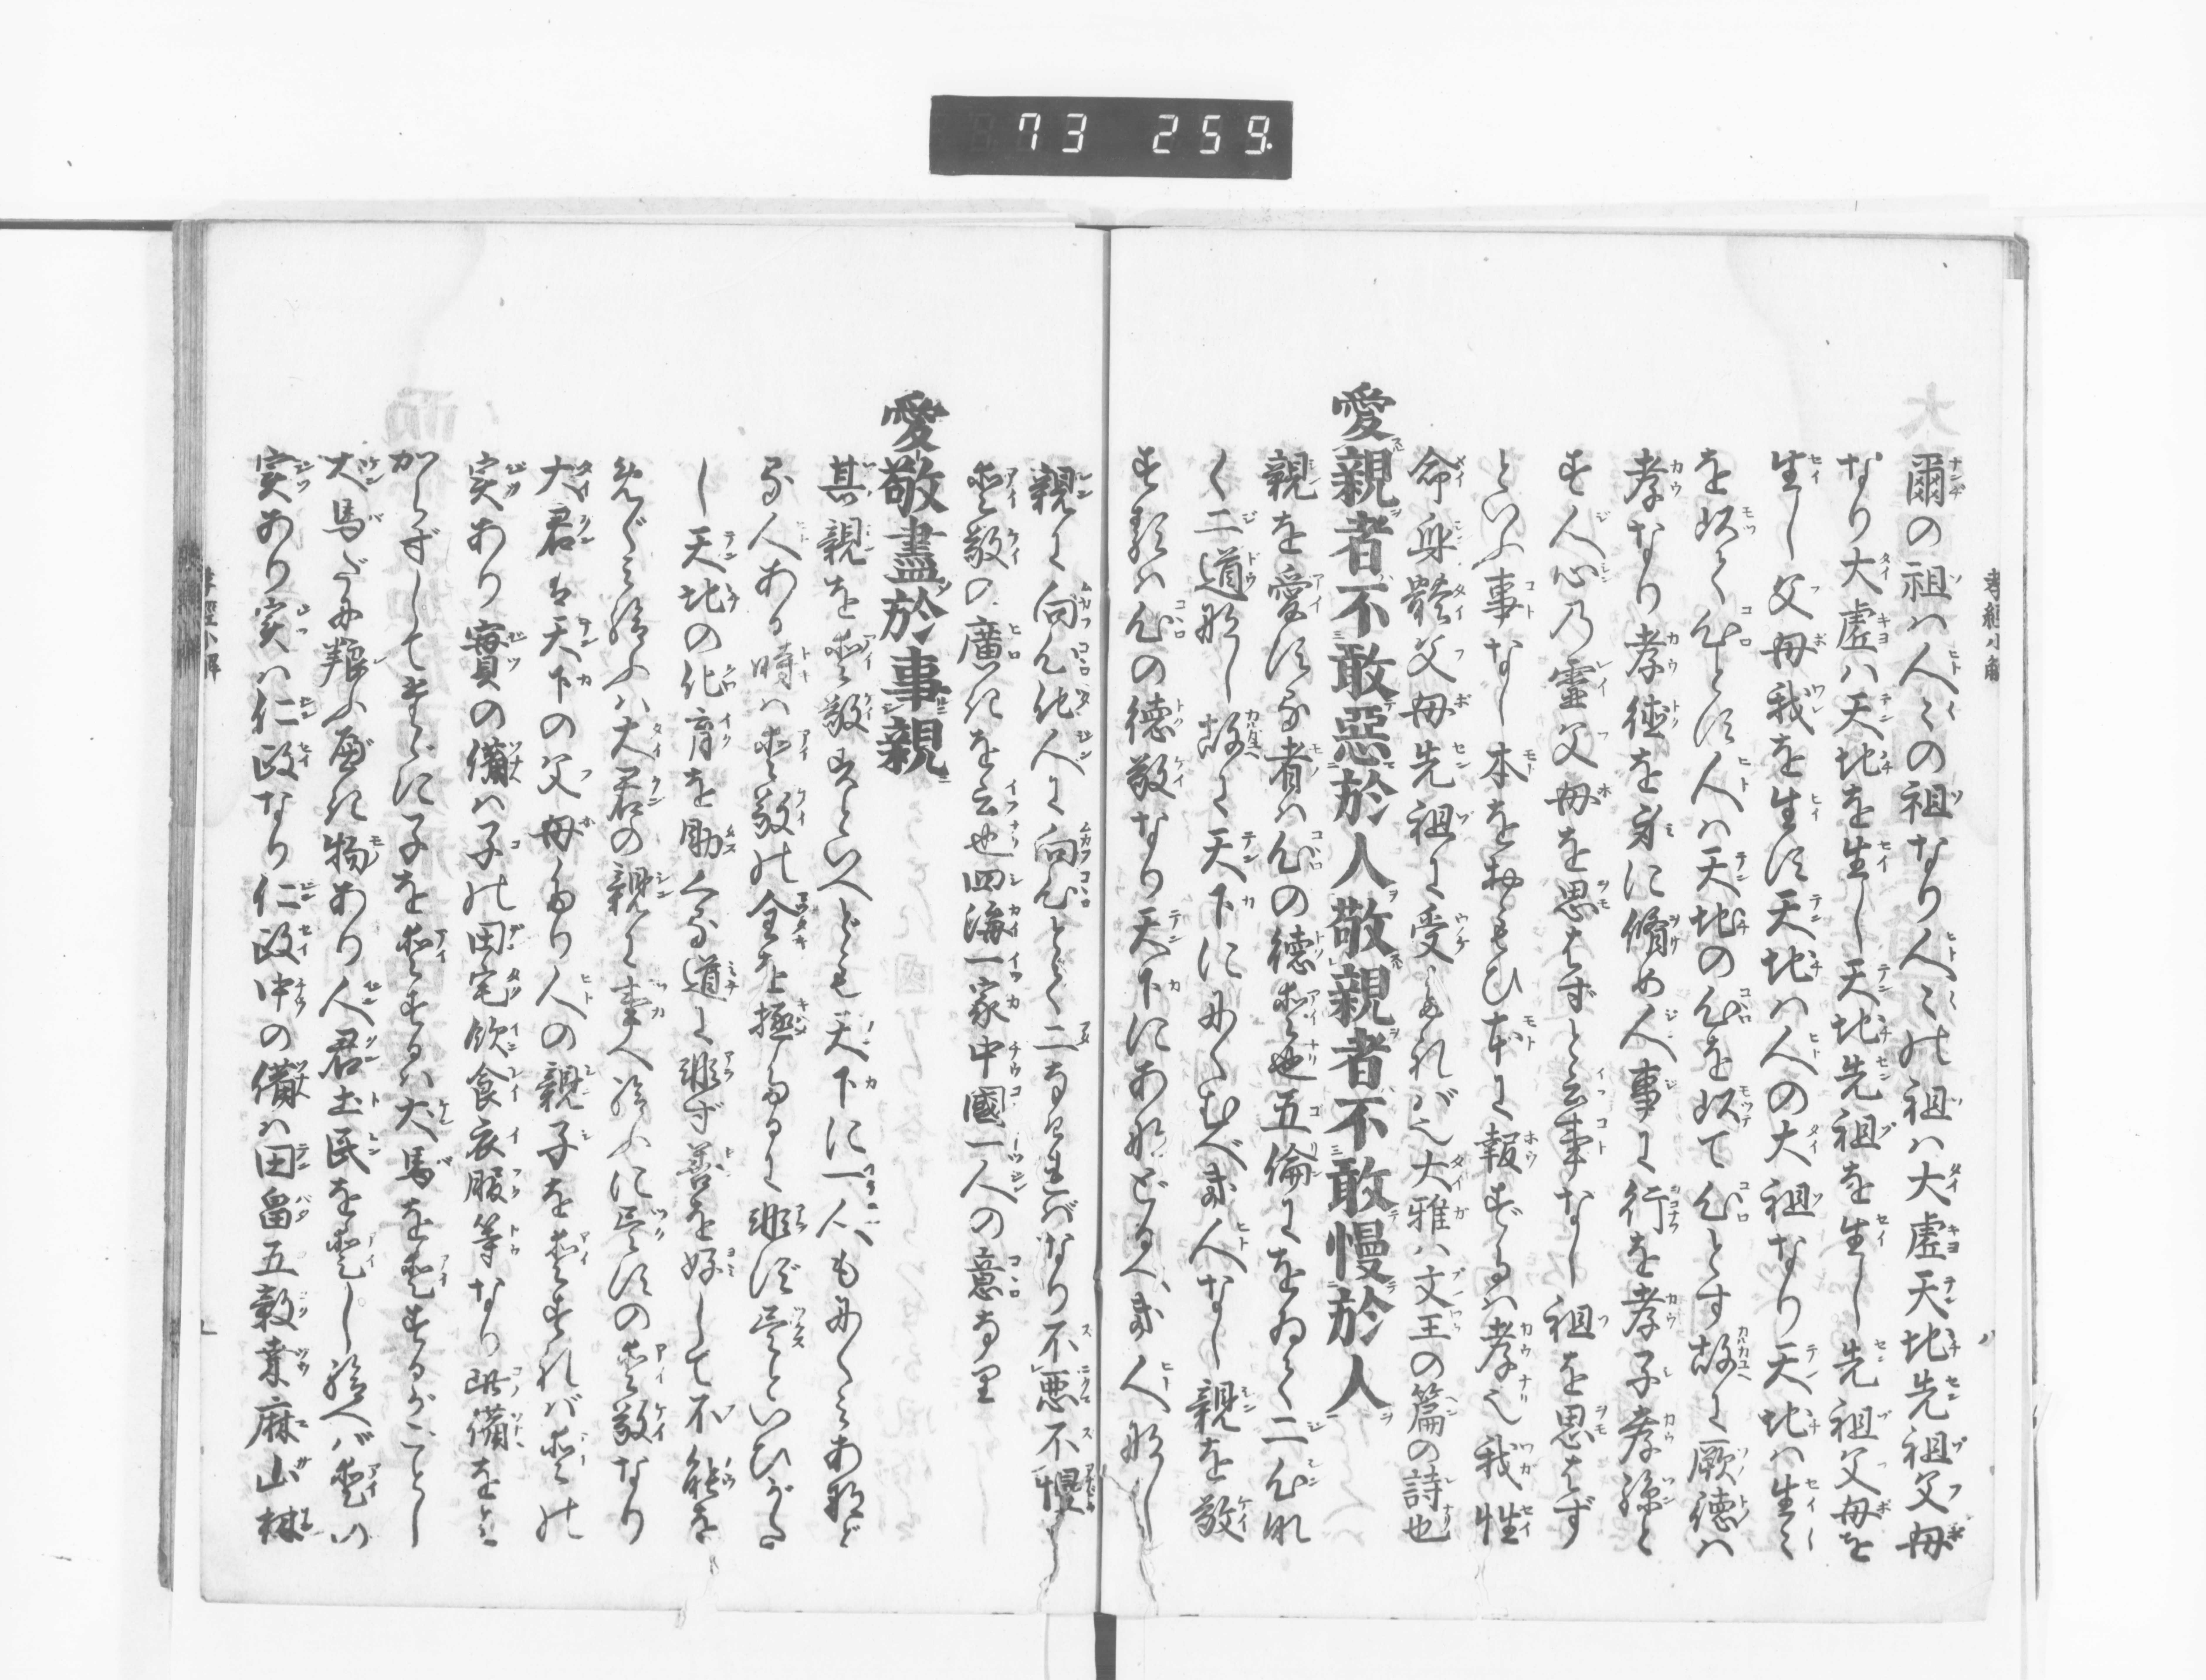 73 259
孝經小解
爾の祖ハ人〻の祖なり人〻の祖ハ大虚天地先祖父母
なり大虚ハ天地を生し天地先祖を生し先祖父母を
生し父母我を生ず天地ハ人の大祖なり天地ハ生〻
を以て心とす人ハ天地の心を以て心とす故に厥徳ハ
孝なり孝徳を身に脩め人事に行を孝子孝孫と
す人心乃靈父母を思はずと云事なし祖を思はず
といふ事なし本をおもひ本に報ずるハ孝也我性
命身體父母先祖に受たれバ也大雅ハ文王の篇の詩也
愛親者不敢惡於人敬親者不敢慢於人
親を愛する者ハ心の徳愛也五倫にをゐて二心な
く二道なし故に天下ににくむべき人なし親を敬
する者ハ心の徳敬なり天下にあなどるべき人なし
親に向ん他人に向心とて二なければなり不悪不慢ハ
愛敬の廣きを云也四海一家中國一人の意なり
愛敬盡於事親
其親を愛敬すといへども天下に一人もにくみあなど
る人ある時ハ愛敬の全を極たるに非ず盡といひがた
し天地の化育を助くる道に非ず善を好して不能を
めぐみ給ふハ大君の親に事へ給ふに盡すの愛敬なり
大君は天下の父母たり人の親子を愛すれバ愛の
実あり寳の備ハ子の田宅飲食衣服等なり此備を
かへずして
犬馬だに
実あり実ハ仁政なり仁政中の備ハ田畠五穀桑麻山林
孝經小解